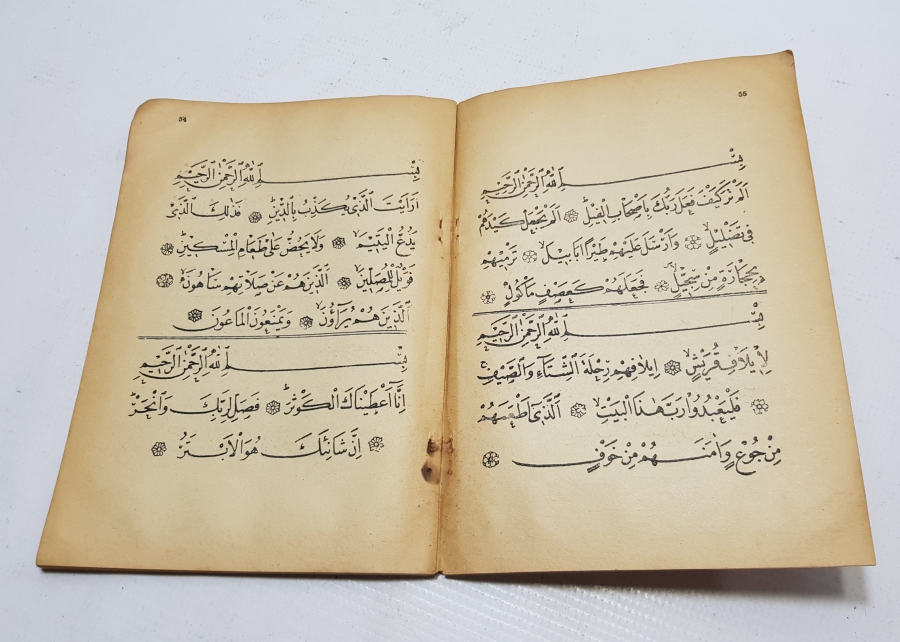 55
بِسْمِ اللّٰهِ الرَّحْمٰنِ الرَّحِيْمِ
اَلَمْ تَرَ كَيْفَ فَعَلَ رَبُّكَ بِاَصْحَابِ الْفِيْلِ ۞ اَلَمْ يَجْعَلْ كَيْدَهُمْ
فِى تَضْلِيْلٍ ۞ وَاَرْسَلَ عَلَيْهِمْ طَيْرًا اَبَابِيْلَ ۞ تَرْمِيْهِمْ
بِحِجَارَةٍ مِنْ سِجِّيْلٍ ۞ فَجَعَلَهُمْ كَعَصْفٍ مَأْكُوْلٍ ۞
بِسْمِ اللّٰهِ الرَّحْمٰنِ الرَّحِيْمِ
لِاِيْلَافِ قُرَيْشٍ ۞ اِيْلَافِهِمْ رِحْلَةَ الشِّتَاۤءِ وَالصَّيْفِ
۞ فَلْيَعْبُدُوْا رَبَّ هٰذَا الْبَيْتِ ۞ اَلَّذِىۤ اَطْعَمَهُمْ
مِنْ جُوْعٍ وَاٰمَنَهُمْ مِنْ خَوْفٍ ۞
54
بِسْمِ اللّٰهِ الرَّحْمٰنِ الرَّحِيْمِ
اَرَاَيْتَ الَّذِى يُكَذِّبُ بِالدِّيْنِ ۞ فَذٰلِكَ الَّذِى
يَدُعُّ الْيَتِيْمَ ۞ وَلَا يَحُضُّ عَلٰى طَعَامِ الْمِسْكِيْنِ ۞
فَوَيْلٌ لِلْمُصَلِّيْنَ ۞ اَلَّذِيْنَ هُمْ عَنْ صَلَاتِهِمْ سَاهُوْنَ ۞
اَلَّذِيْنَ هُمْ يُرَاۤؤُنَ ۞ وَيَمْنَعُوْنَ الْمَاعُوْنَ ۞
بِسْمِ اللّٰهِ الرَّحْمٰنِ الرَّحِيْمِ
اِنَّاۤ اَعْطَيْنَاكَ الْكَوْثَرَ ۞ فَصَلِّ لِرَبِّكَ وَانْحَرْ
۞ اِنَّ شَانِئَكَ هُوَ الْاَبْتَرُ ۞